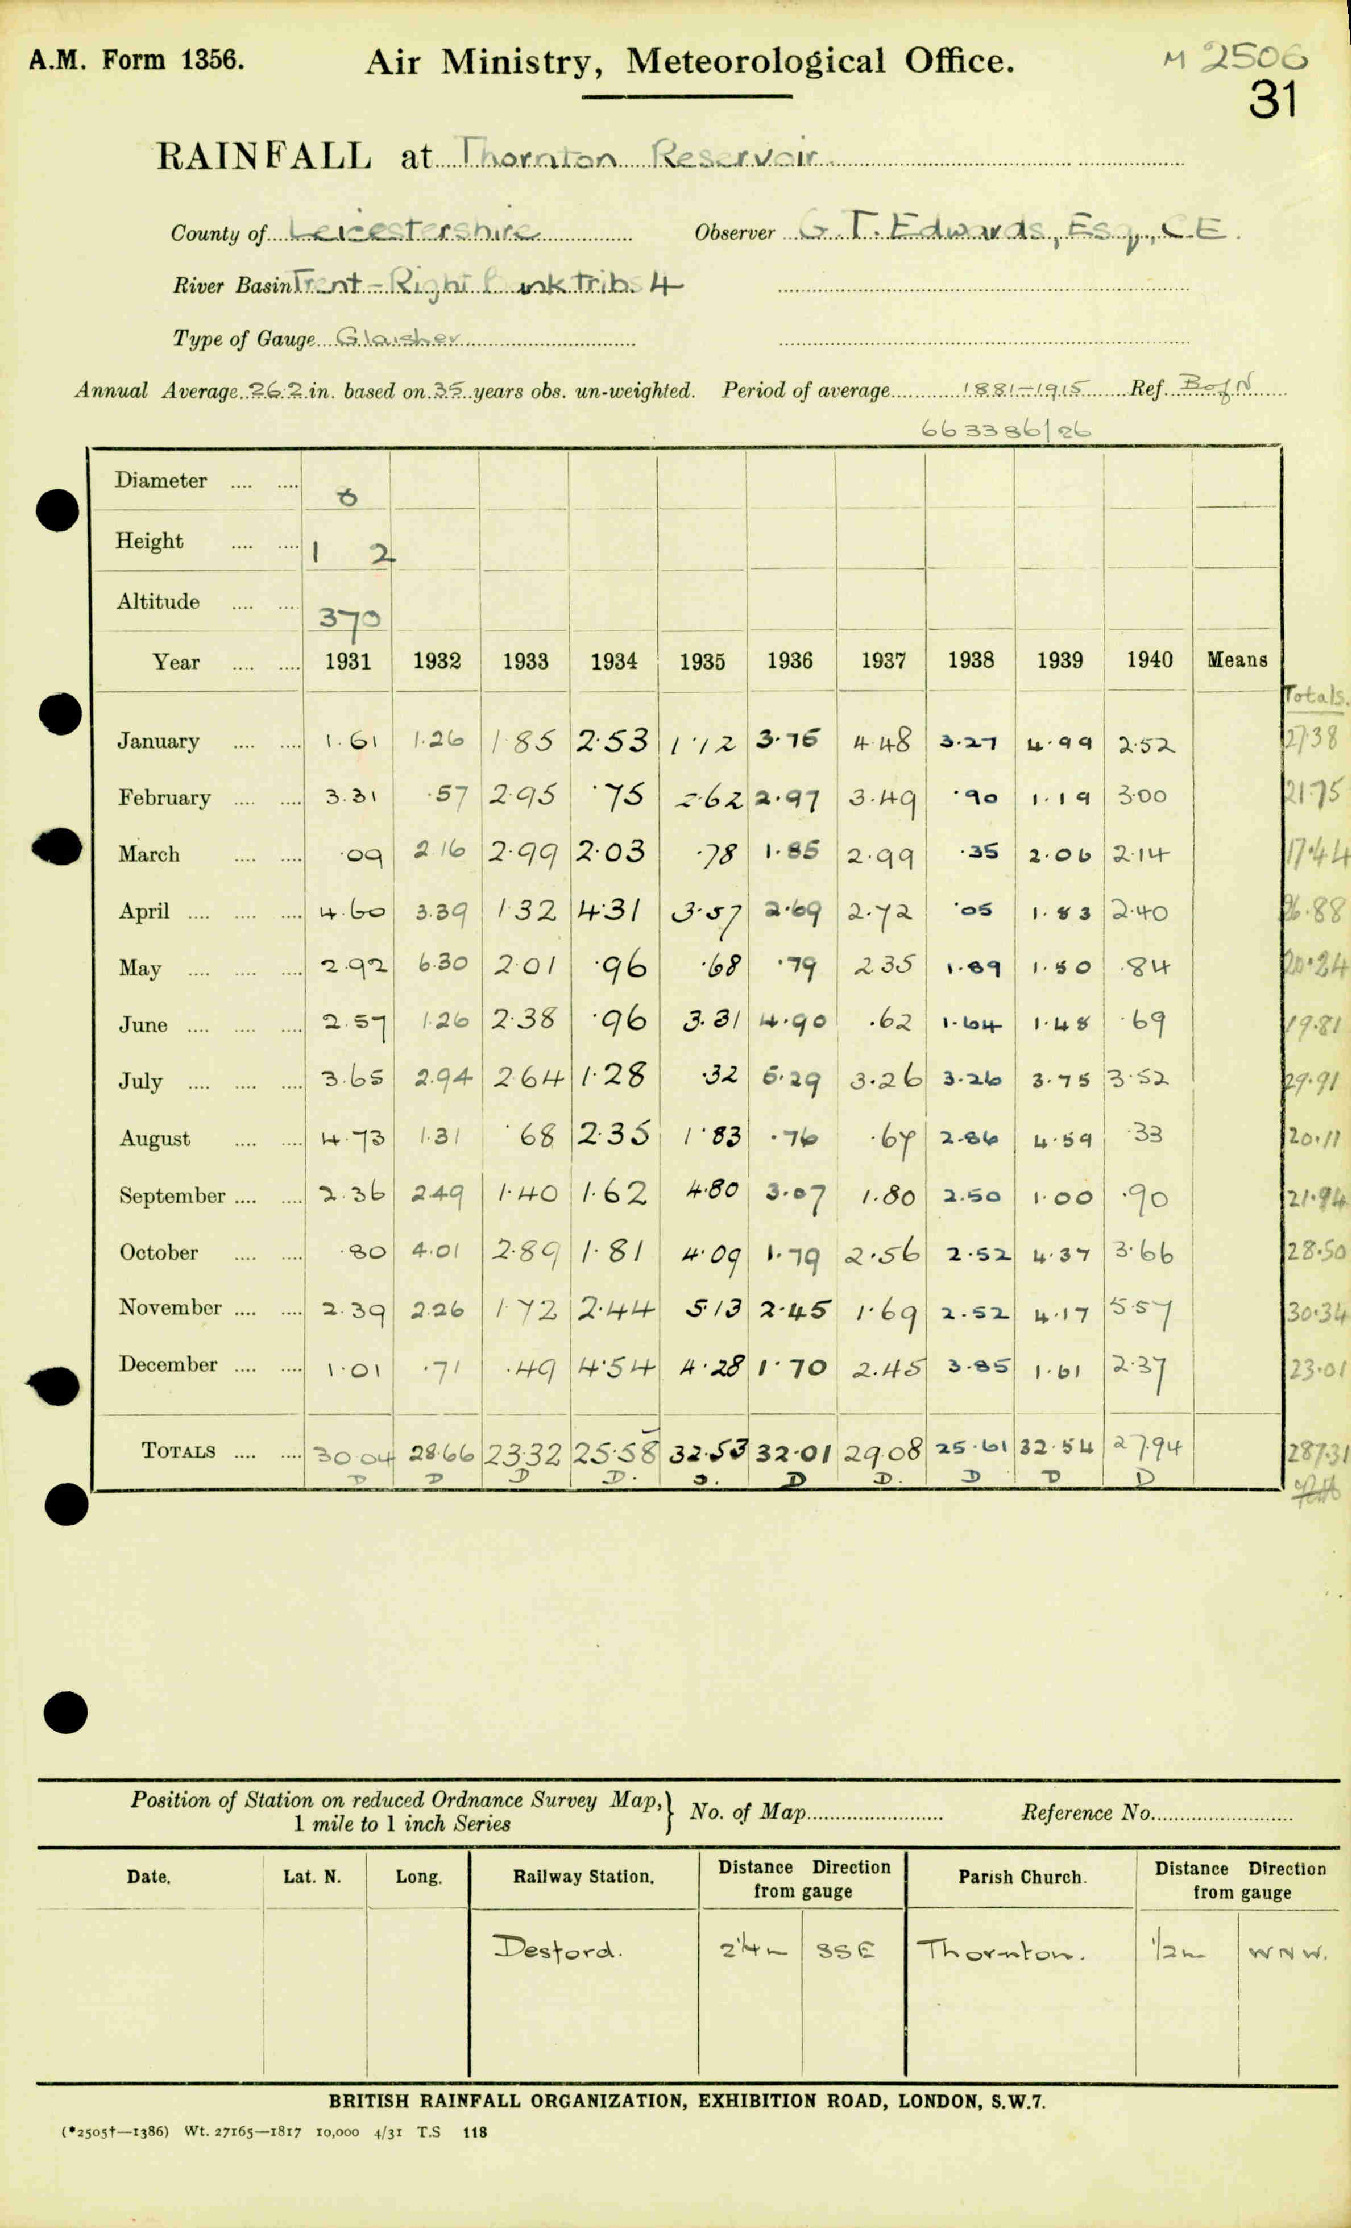 A.M. Form 1356.
Air Ministry, Meteorological Office.
M 2506
31
RAINFALL at Thornton Reservoir.
County of Leicestershire Observer G. T. Edwards, Esq., C.E.
River Basin Trent - Right bank tribs 4
Type of Gauge Glaisher
Annual Average 26.2 in. based on 35 years obs. un-weighted. Period of average 1881-1915 Ref. B of N
663386/26
Diameter .... .... 8
Height .... .... 1 2
Altitude .... .... 370
Year .... .... 1931 1932 1933 1934 1935 1936 1937 1938 1939 1940 Means
Totals.
January .... .... 1.61 1.26 1.85 2.53 1.12 3.75 4.48 3.27 4.99 2.52 27.38
February .... .... 3.31 .57 2.95 .75 2.62 2.97 3.49 .90 1.19 3.00 21.75
March .... .... .09 2.16 2.99 2.03 .78 1.85 2.99 .35 2.06 2.14 17.44
April .... .... .... 4.60 3.39 1.32 4.31 3.57 2.69 2.72 .05 1.83 2.40 26.88
May .... .... .... 2.92 6.30 2.01 .96 .68 .79 2.35 1.89 1.50 .84 20.24
June .... .... .... 2.57 1.26 2.38 .96 3.31 4.90 .62 1.64 1.48 .69 19.81
July .... .... .... 3.65 2.94 2.64 1.28 .32 5.29 3.26 3.26 3.75 3.52 29.91
August .... .... 4.73 1.31 .68 2.35 1.83 .76 .67 2.86 4.59 .33 20.11
September .... .... 2.36 2.49 1.40 1.62 4.80 3.07 1.80 2.50 1.00 .90 21.94
October .... .... .80 4.01 2.89 1.81 4.09 1.79 2.56 2.52 4.37 3.66 28.50
November .... .... 2.39 2.26 1.72 2.44 5.13 2.45 1.69 2.52 4.17 5.57 30.34
December .... .... 1.01 .71 .49 4.54 4.28 1.70 2.45 3.85 1.61 2.37 23.01
TOTALS .... .... 30.04 28.66 23.32 25.58 32.53 32.01 29.08 25.61 32.54 27.94 287.31
D D D D. D. D D. D D D
Position of Station on reduced Ordnance Survey Map,
1 mile to 1 inch Series
No. of Map
Reference No.
Date. Lat. N. Long. Railway Station. Distance Direction from gauge Parish Church. Distance Direction from gauge
Desford. 2¼m SSE Thornton. 1/2m WNW.
BRITISH RAINFALL ORGANIZATION, EXHIBITION ROAD, LONDON, S.W.7.
(*2505†—1386) Wt. 27165—1817 10,000 4/31 T.S 118